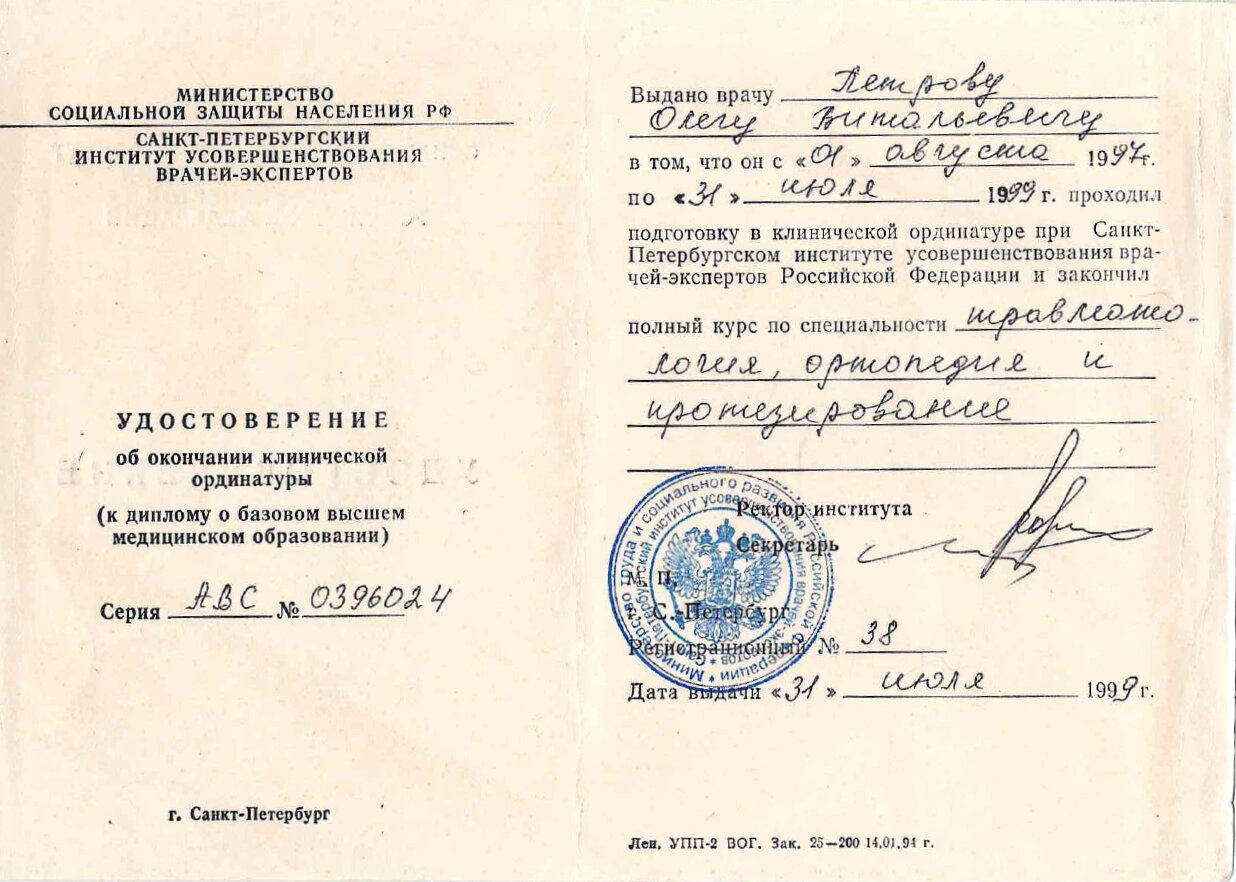 МИНИСТЕРСТВО
СОЦИАЛЬНОЙ ЗАЩИТЫ НАСЕЛЕНИЯ РФ
САНКТ-ПЕТЕРБУРГСКИЙ
ИНСТИТУТ УСОВЕРШЕНСТВОВАНИЯ
ВРАЧЕЙ-ЭКСПЕРТОВ
УДОСТОВЕРЕНИЕ
об окончании клинической
ординатуры
(к диплому о базовом высшем
медицинском образовании)
Серия АВС № 0396024
г. Санкт-Петербург
Выдано врачу Петрову
Олегу Витальевичу
в том, что он с «01» августа 1997г.
по «31» июля 1999 г. проходил
подготовку в клинической ординатуре при Санкт-
Петербургском институте усовершенствования вра-
чей-экспертов Российской Федерации и закончил
полный курс по специальности травмато-
логия, ортопедия и
протезирование
Ректор института
Секретарь
М. П.
г. С.-Петербург
Регистрационный № 38
Дата выдачи «31» июля 1999 г.
Министерство труда и социального развития Российской Федерации *
Санкт-Петербургский институт усовершенствования врачей-экспертов *
Лен. УПП-2 ВОГ. Зак. 25—200 14.01.94 г.